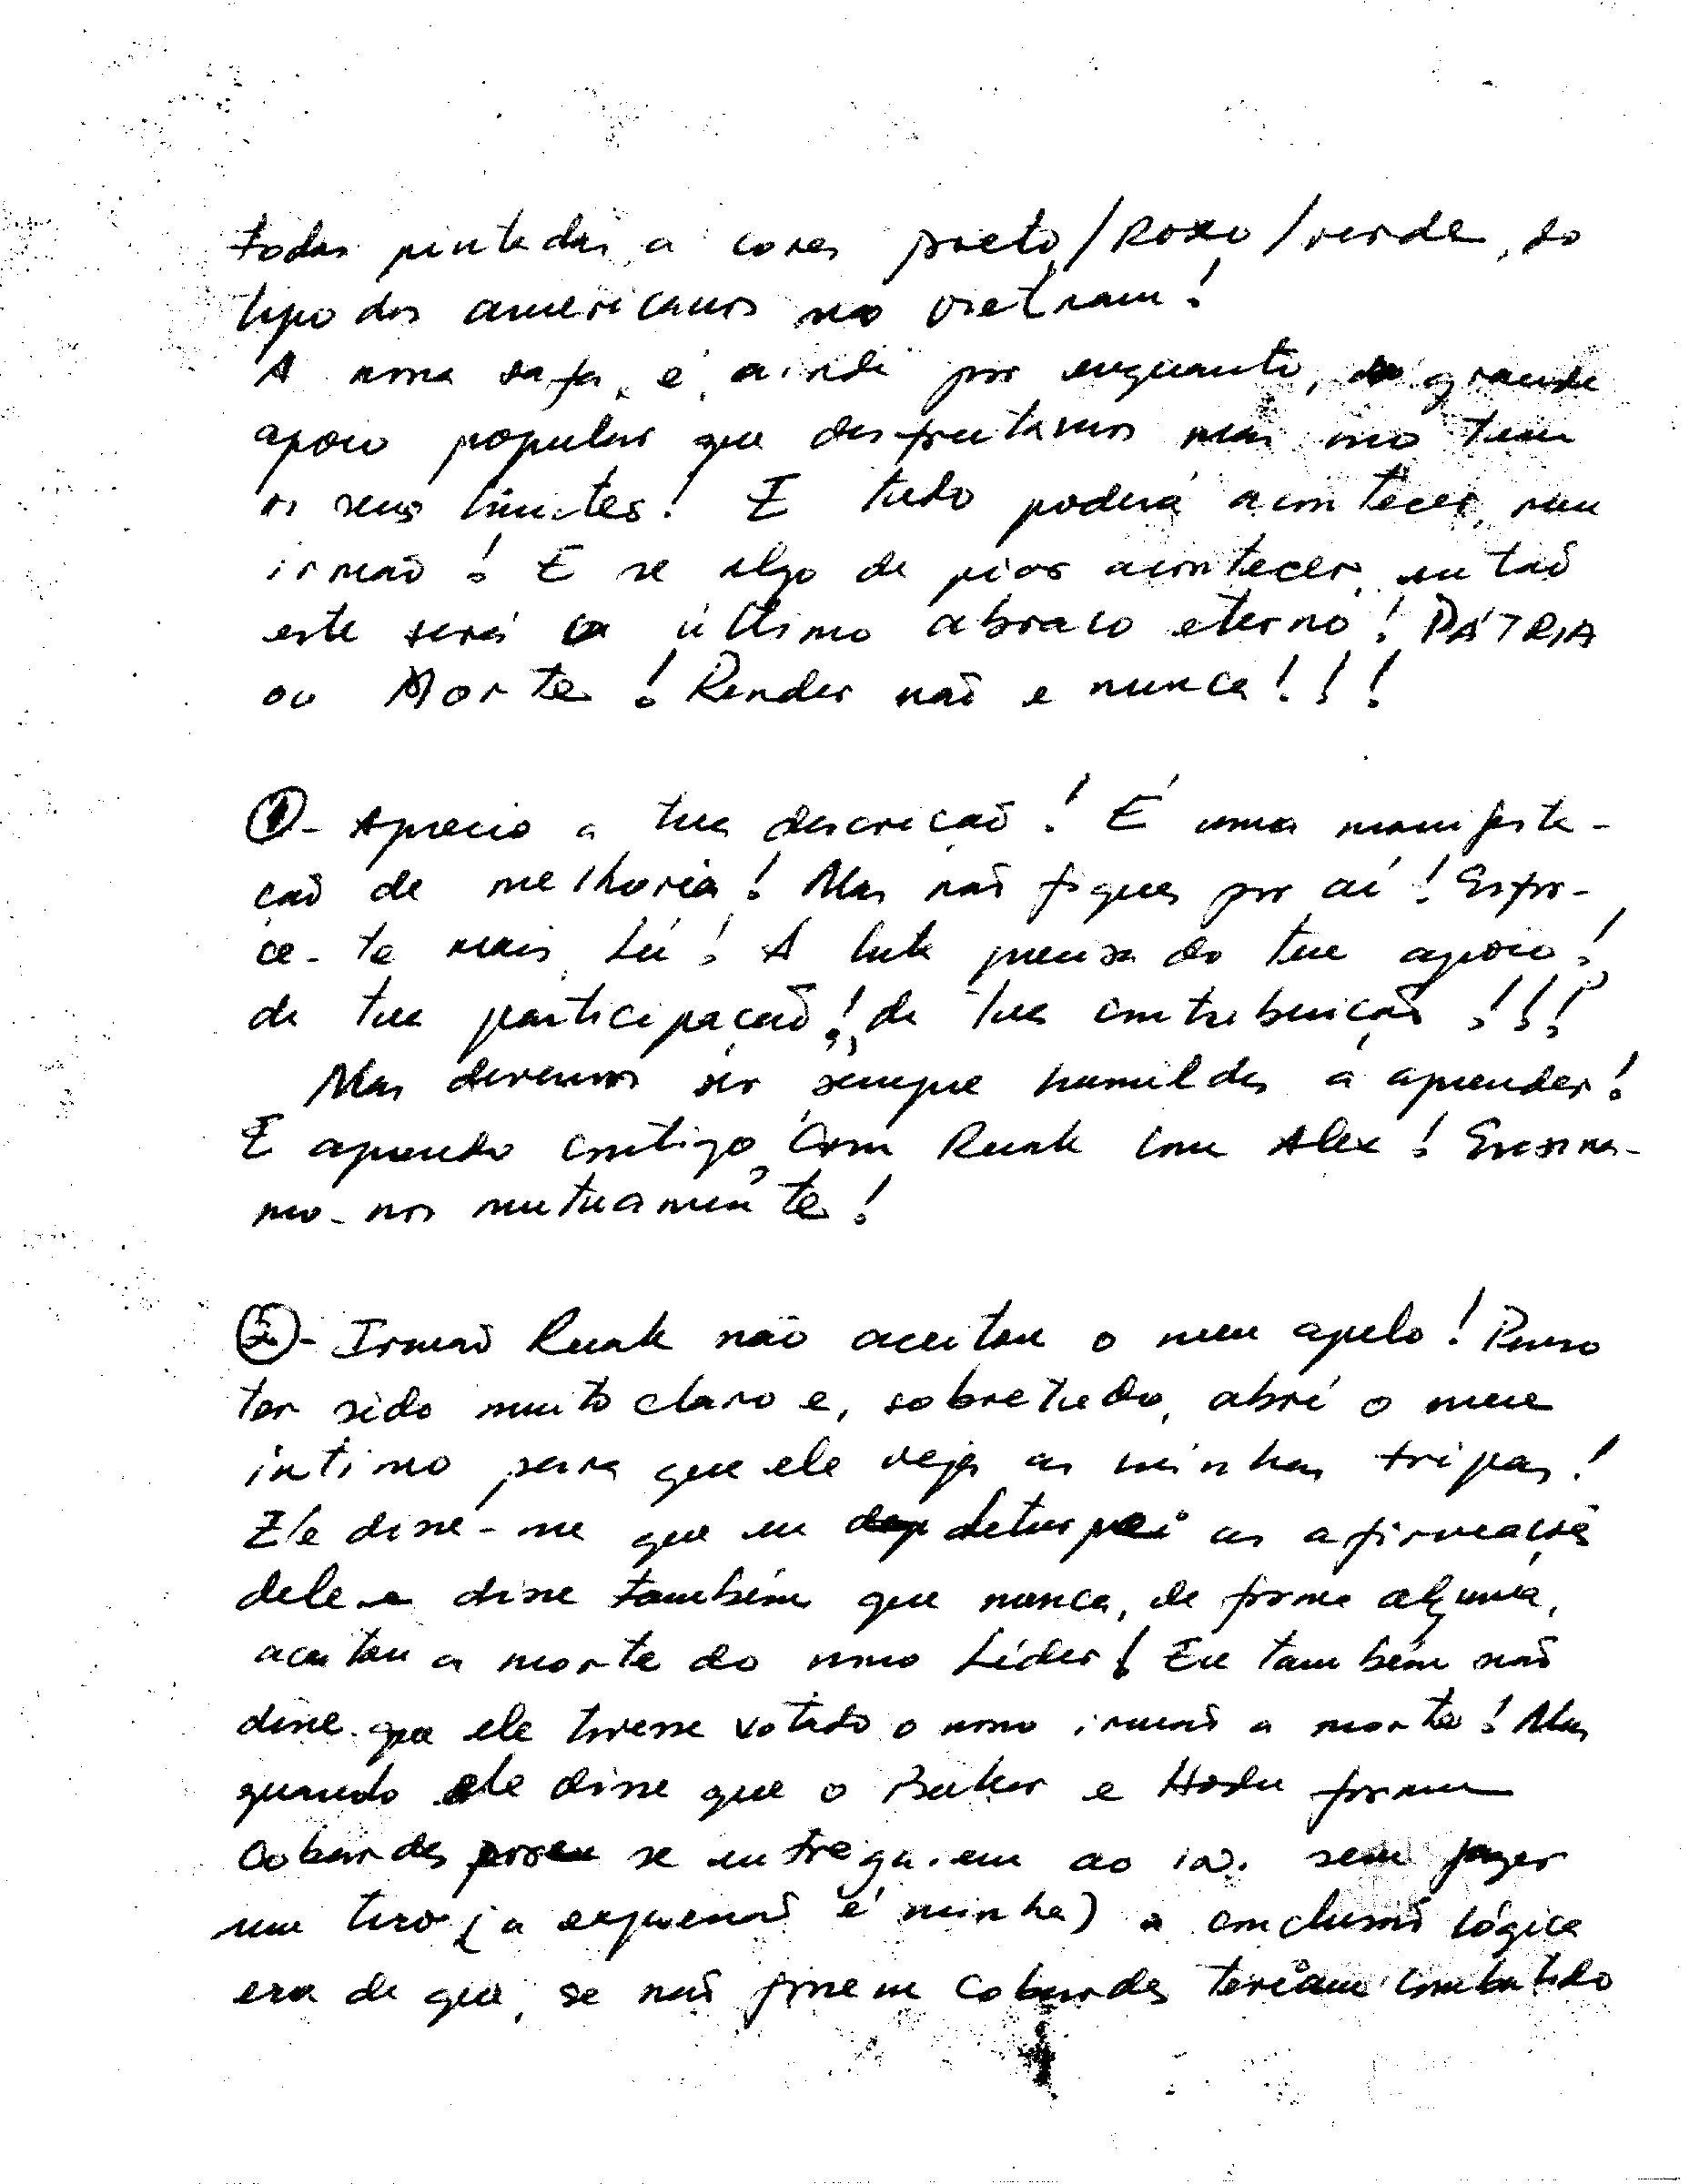 todas pintadas a cores preto/Roxo/verde, do
tipo dos americanos no Vietnam!
A nossa safa, é ainda por enquanto, o grande
apoio popular que desfrutamos mas isso tem
os seus limites! E tudo poderá acontecer, meu
irmão! E se algo de pior acontecer, então
este será o último abraço eterno! PÁTRIA
ou Morte! Render não e nunca!!!
①- Aprecio a tua descrição! É uma manifesta-
ção de melhoria! Mas não fiques por aí! Esfor-
ce-te mais, Lú! A luta precisa do teu apoio!
da tua participação!, da tua contribuição!!!
Mas devemos ser sempre humildes a aprender!
E aprendo contigo, Com Ruak com Alex! Ensina-
mo-nos mutuamente!
②- Irmão Ruak não aceitou o meu apelo! Penso
ter sido muito claro e, sobretudo, abri o meu
íntimo para que ele veja as minhas tripas!
Ele disse-me que eu deturpei as afirmações
dele e disse também que nunca, de forma alguma,
aceitou a morte do nosso Líder! Eu também não
disse que ele tivesse votado o nosso irmão a morte! Mas
quando ele disse que o Buker e Hodu foram
cobardes se entregarem ao in. sem fazer
um tiro (a expressão é minha) a conclusão lógica
era de que, se não fossem cobardes teriam combatido